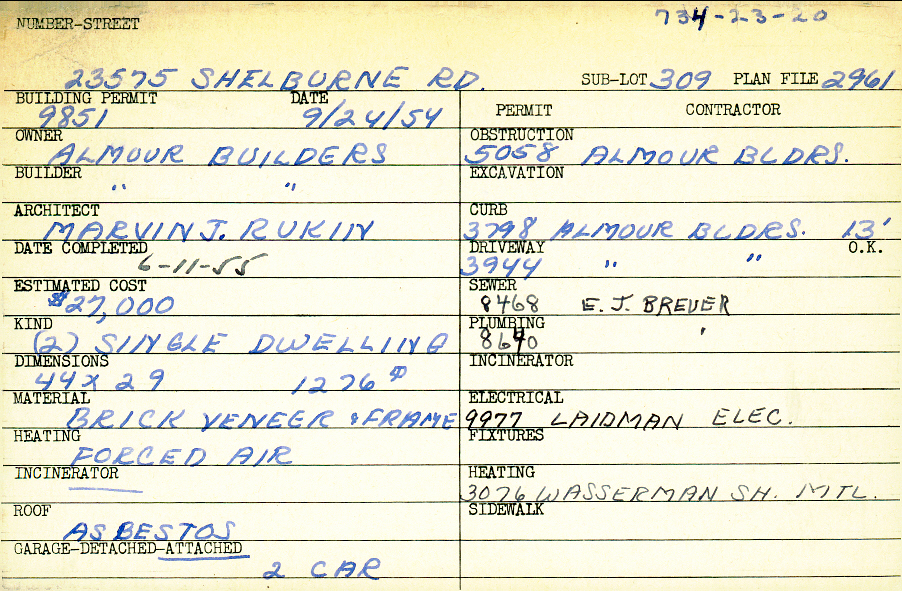 734-23-20
NUMBER-STREET
23575 SHELBURNE RD. SUB-LOT 309 PLAN FILE 2961
BUILDING PERMIT DATE
9851 9/24/54
OWNER
ALMOUR BUILDERS
BUILDER
" "
ARCHITECT
MARVIN J. RUKIN
DATE COMPLETED
6-11-55
ESTIMATED COST
$27,000
KIND
(2) SINGLE DWELLING
DIMENSIONS
44 x 29 1276
MATERIAL
BRICK VENEER & FRAME
HEATING
FORCED AIR
INCINERATOR
ROOF
ASBESTOS
GARAGE-DETACHED-ATTACHED
2 CAR
PERMIT CONTRACTOR
OBSTRUCTION
5058 ALMOUR BLDRS.
EXCAVATION
CURB
3798 ALMOUR BLDRS. 13'
DRIVEWAY O.K.
3944 " "
SEWER
8468 E. J. BREUER
PLUMBING
8640 "
INCINERATOR
ELECTRICAL
9977 LAIDMAN ELEC.
FIXTURES
HEATING
3076 WASSERMAN SH. MTL.
SIDEWALK